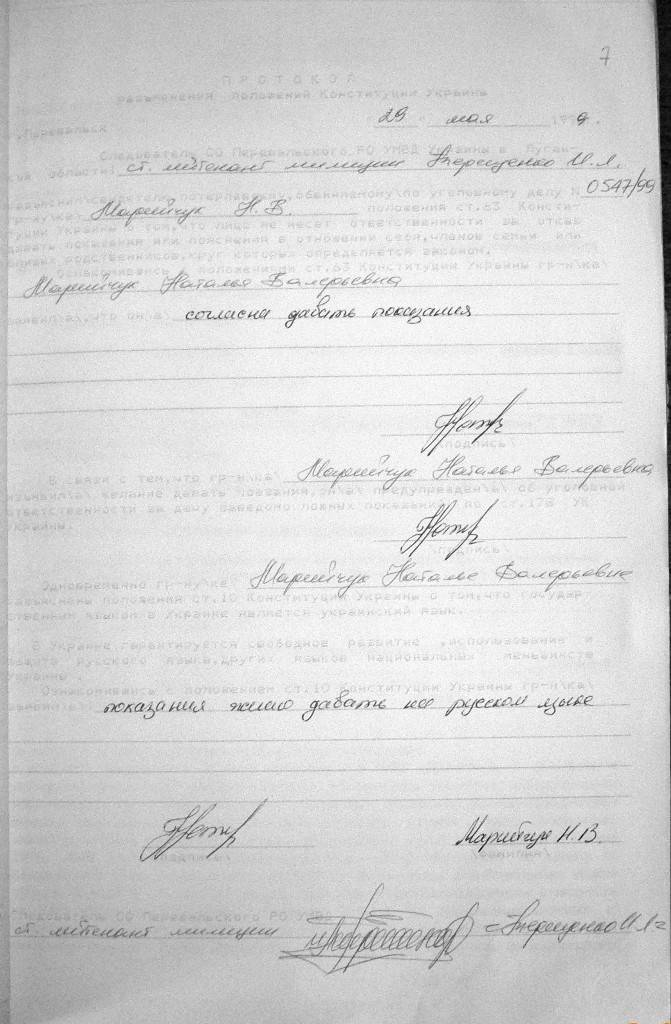 7
ПРОТОКОЛ
разъяснения положений Конституции Украины
г.Перевальск "29" мая 1999г.
Следователь СО Перевальского РО УМВД Украины в Луган-
ской области ст. лейтенант милиции Терещенко И.Л.
свидетелю, потерпевшему, обвиняемому\по уголовному делу N
0547/99
гр-ну\ке\ Марийчук Н.В. положения ст.63 Консти-
туции Украины о том,что лицо не несет ответственности за отказ
давать показания или пояснения в отношении себя,членов семьи или
близких родственников,круг которых определяется законом.
Ознакомившись с положениями ст.63 Конституции Украины гр-н\ка\
Марийчук Наталья Валерьевна
заявил\а\,что он\а\
согласна давать показания
\подпись\
В связи с тем,что гр-н\ка\ Марийчук Наталья Валерьевна
изъявил\а\ желание давать показания,он\а\ предупрежден\а\ об уголовной
ответственности за дачу заведомо ложных показаний по ст.178 УК
Украины.
\подпись\
Одновременно гр-ну\ке\ Марийчук Наталье Валерьевне
разъяснены положения ст.10 Конституции Украины о том,что государ-
ственным языком в Украине является украинский язык.
В Украине гарантируется свободное развитие ,использование и
защита русского языка,других языков национальных меньшинств
Украины .
Ознакомившись с положением ст.10 Конституции Украины гр-н\ка\
заявил\а\
показания желаю давать на русском языке
Марийчук Н.В.
\подпись\ \фамилия\
Следователь СО Перевальского РО УМВД
ст. лейтенант милиции =Терещенко И.Л=